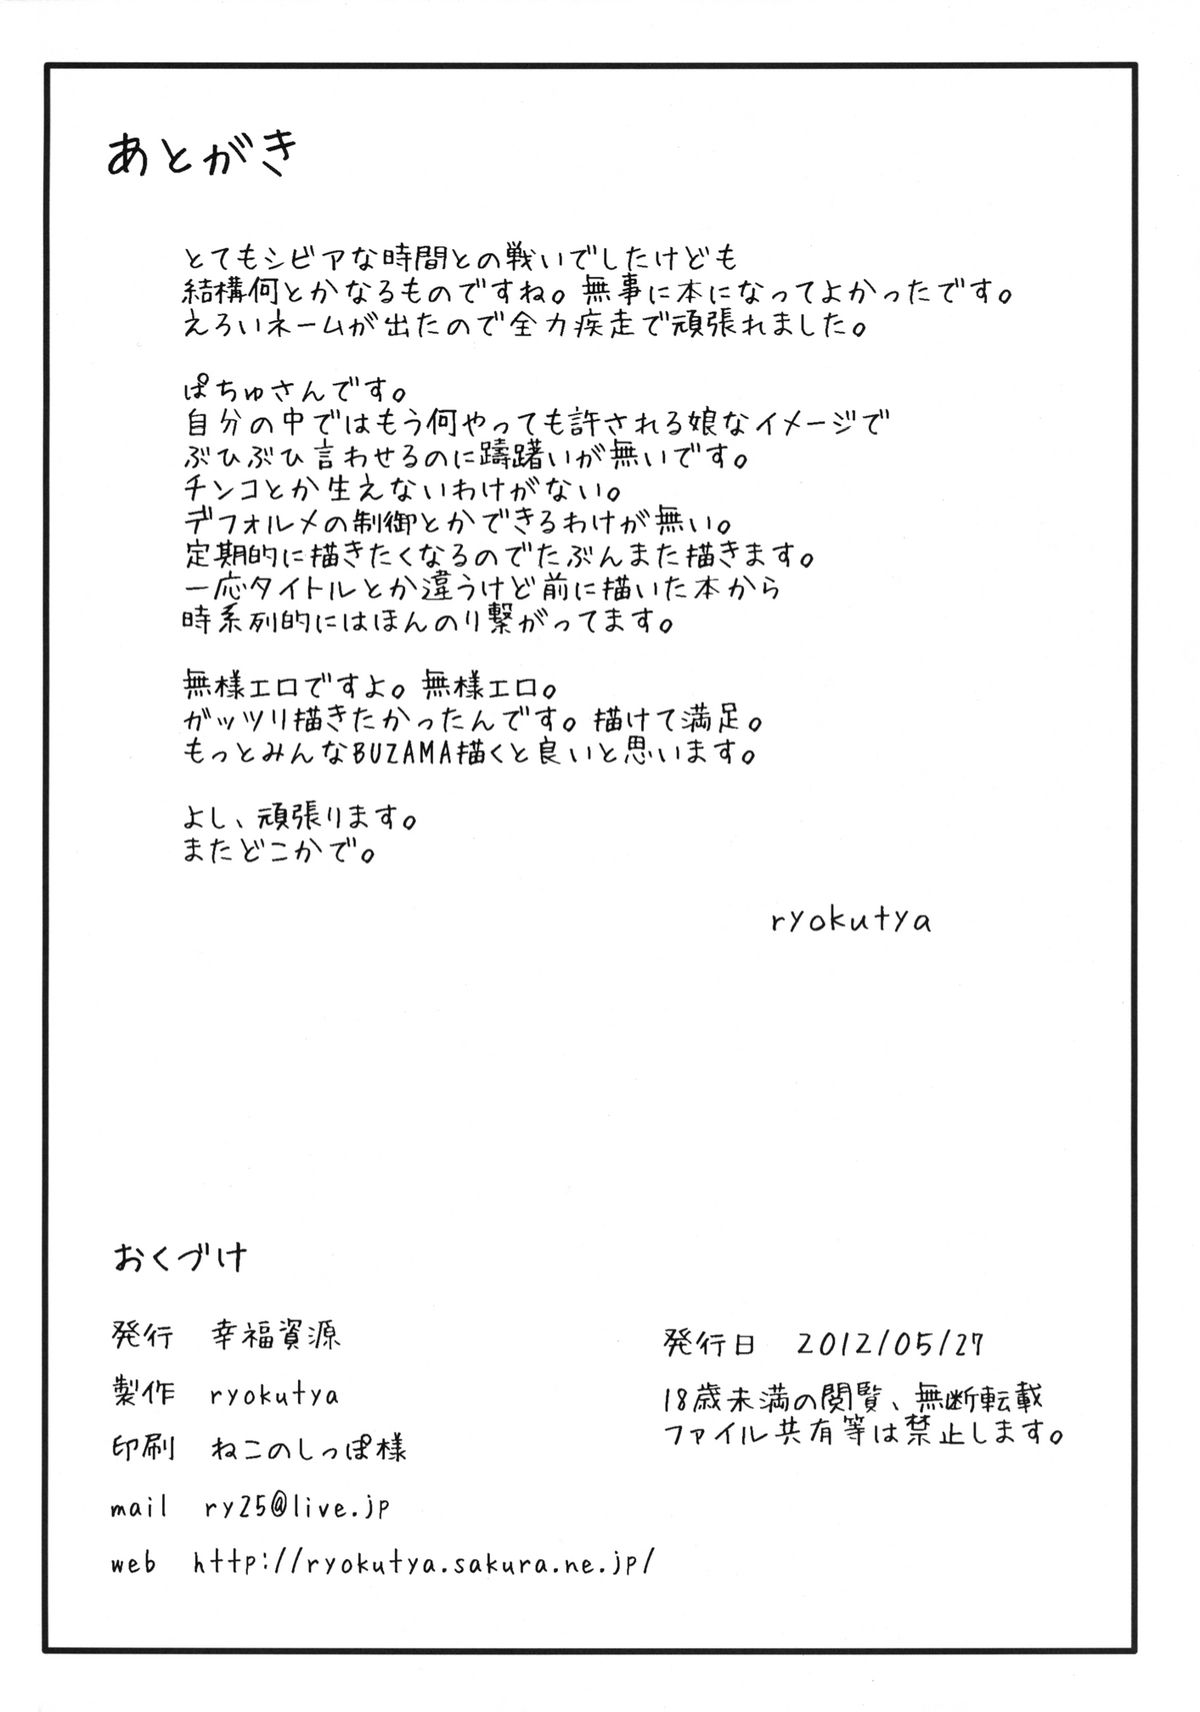 あとがき
とてもシビアな時間との戦いでしたけども
結構何とかなるものですね。無事に本になってよかったです。
えろいネームが出たので全力疾走で頑張れました。
ぱちゅさんです。
自分の中ではもう何やっても許される娘なイメージで
ぶひぶひ言わせるのに躊躇いが無いです。
チンコとか生えないわけがない。
デフォルメの制御とかできるわけが無い。
定期的に描きたくなるのでたぶんまた描きます。
一応タイトルとか違うけど前に描いた本から
時系列的にはほんのり繋がってます。
無様エロですよ。無様エロ。
ガッツリ描きたかったんです。描けて満足。
もっとみんなBUZAMA描くと良いと思います。
よし、頑張ります。
またどこかで。
ryokutya
おくづけ
発行 幸福資源
製作 ryokutya
印刷 ねこのしっぽ様
mail ry25@live.jp
web http://ryokutya.sakura.ne.jp/
発行日 2012/05/27
18歳未満の閲覧、無断転載
ファイル共有等は禁止します。